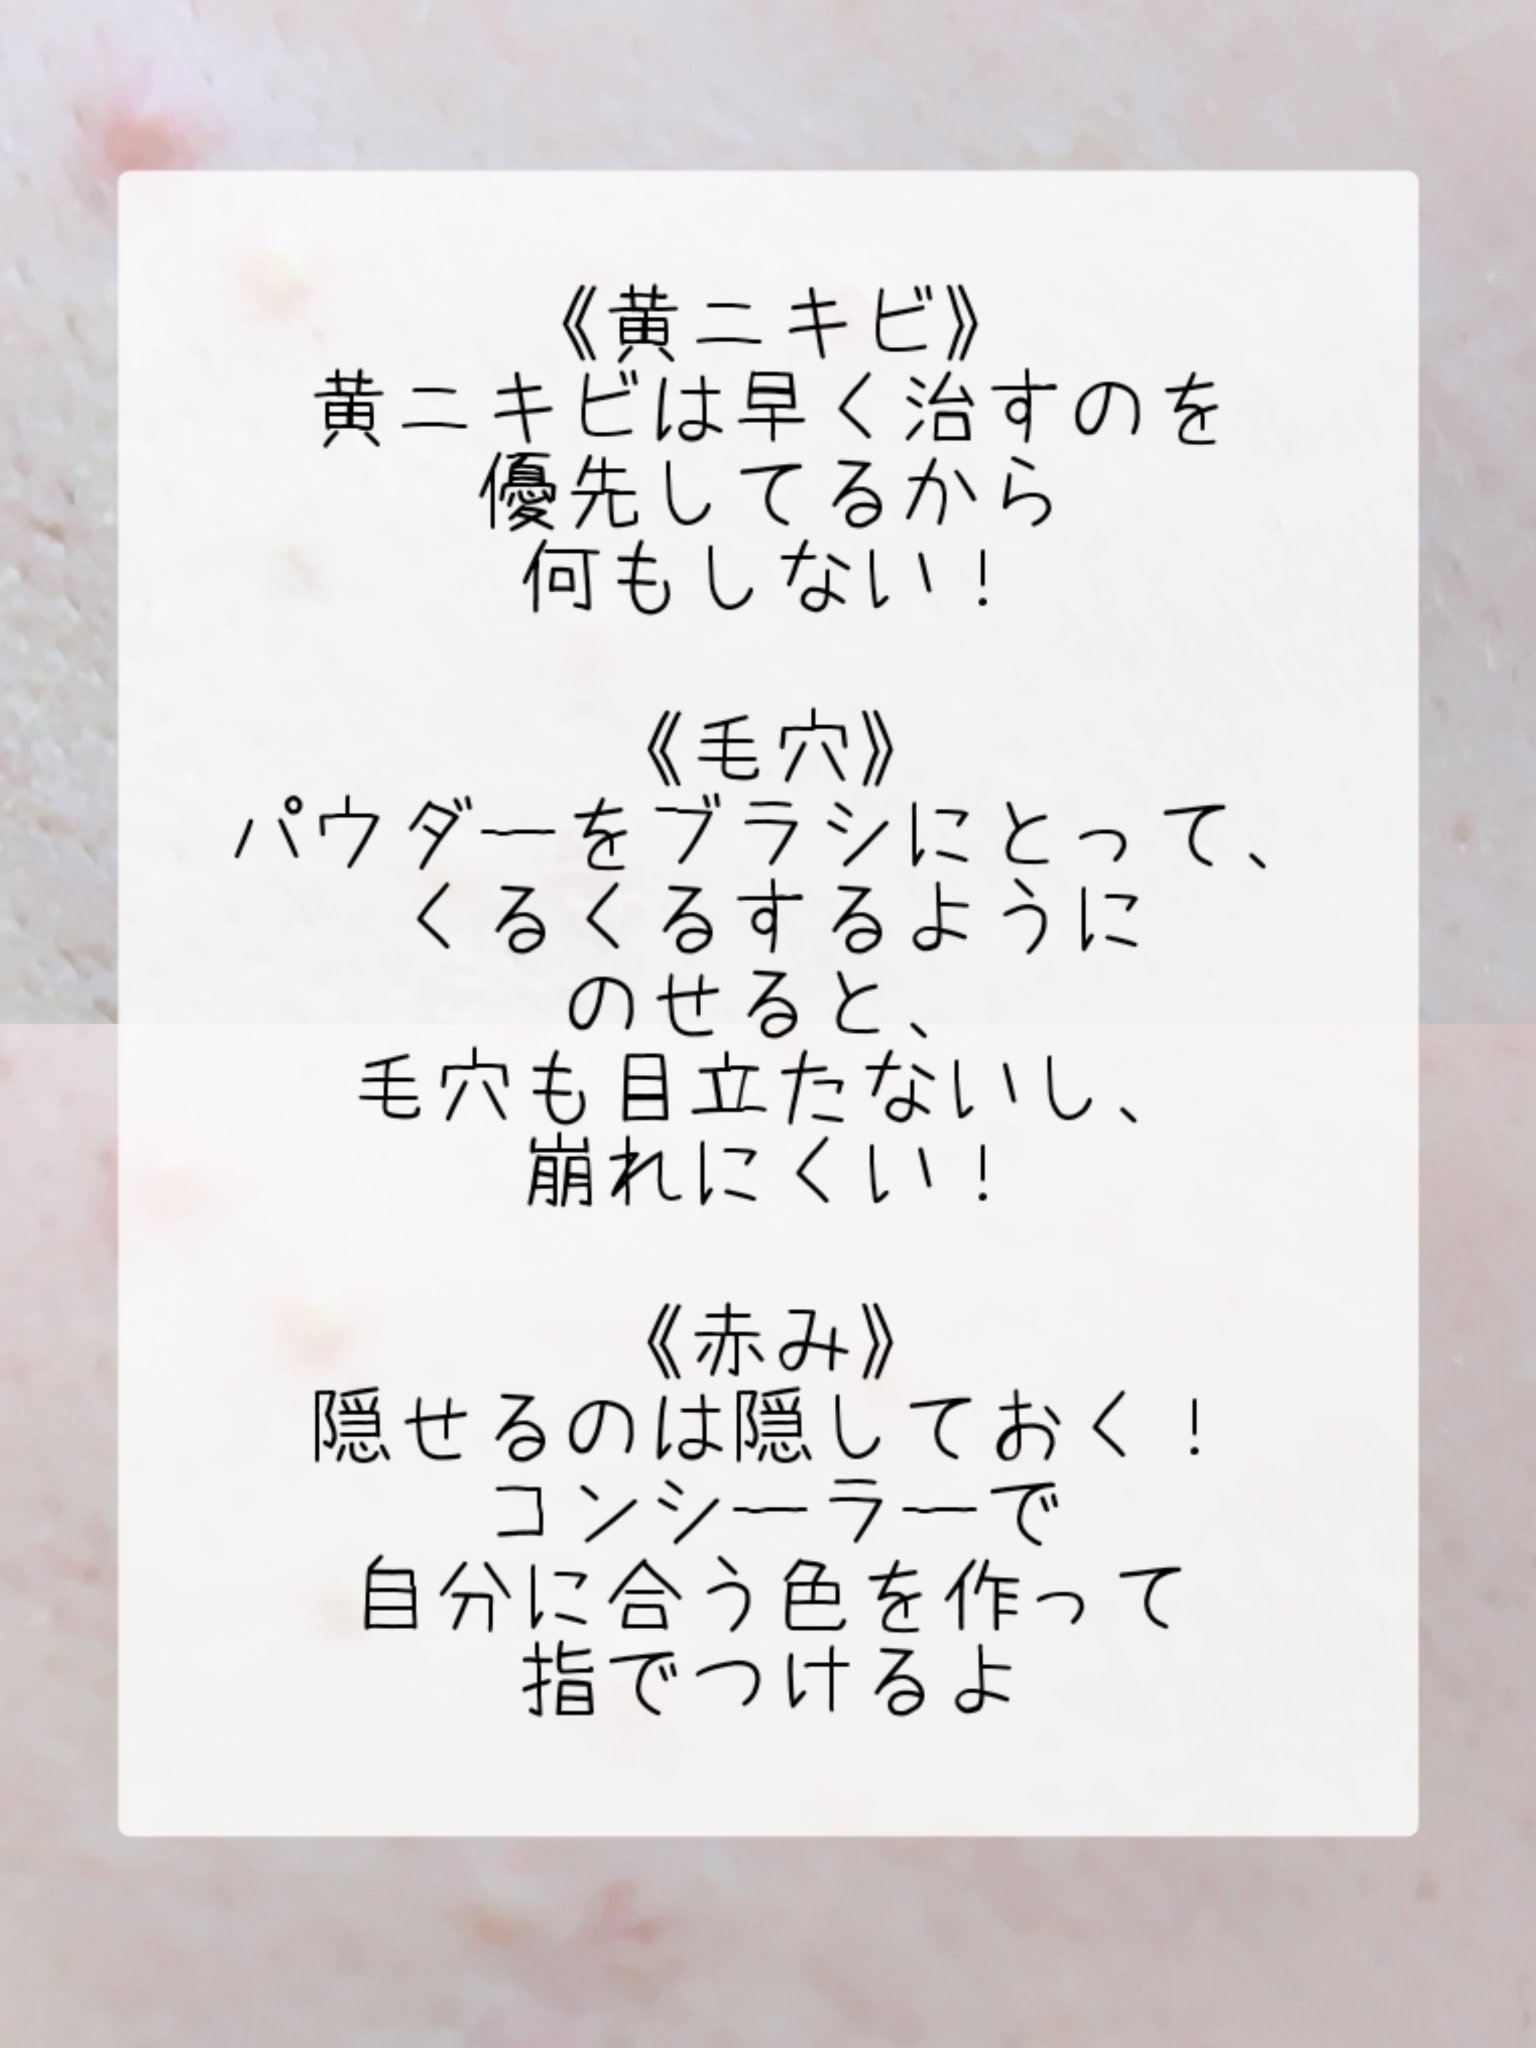 《黄ニキビ》
黄ニキビは早く治すのを
優先してるから
何もしない！
《毛穴》
パウダーをブラシにとって、
くるくるするように
のせると、
毛穴も目立たないし、
崩れにくい！
《赤み》
隠せるのは隠しておく！
コンシーラーで
自分に合う色を作って
指でつけるよ